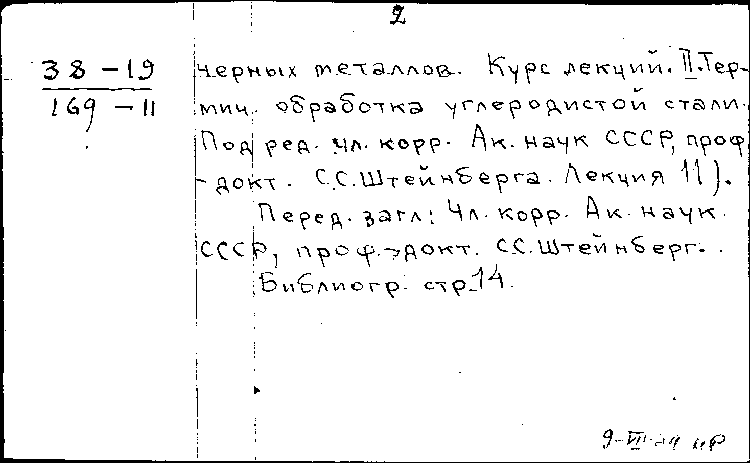 2
38-19
169-11
черных металлов. Курс лекций. II. Тер-
мич. обработка углеродистой стали.
Под ред. чл. корр. Ак. наук СССР, проф
-докт. С.С. Штейнберга. Лекция 11).
Перед. загл: Чл. корр. Ак. наук
СССР, проф.-докт. С.С. Штейнберг.
Библиогр. стр. 14.
9-VII